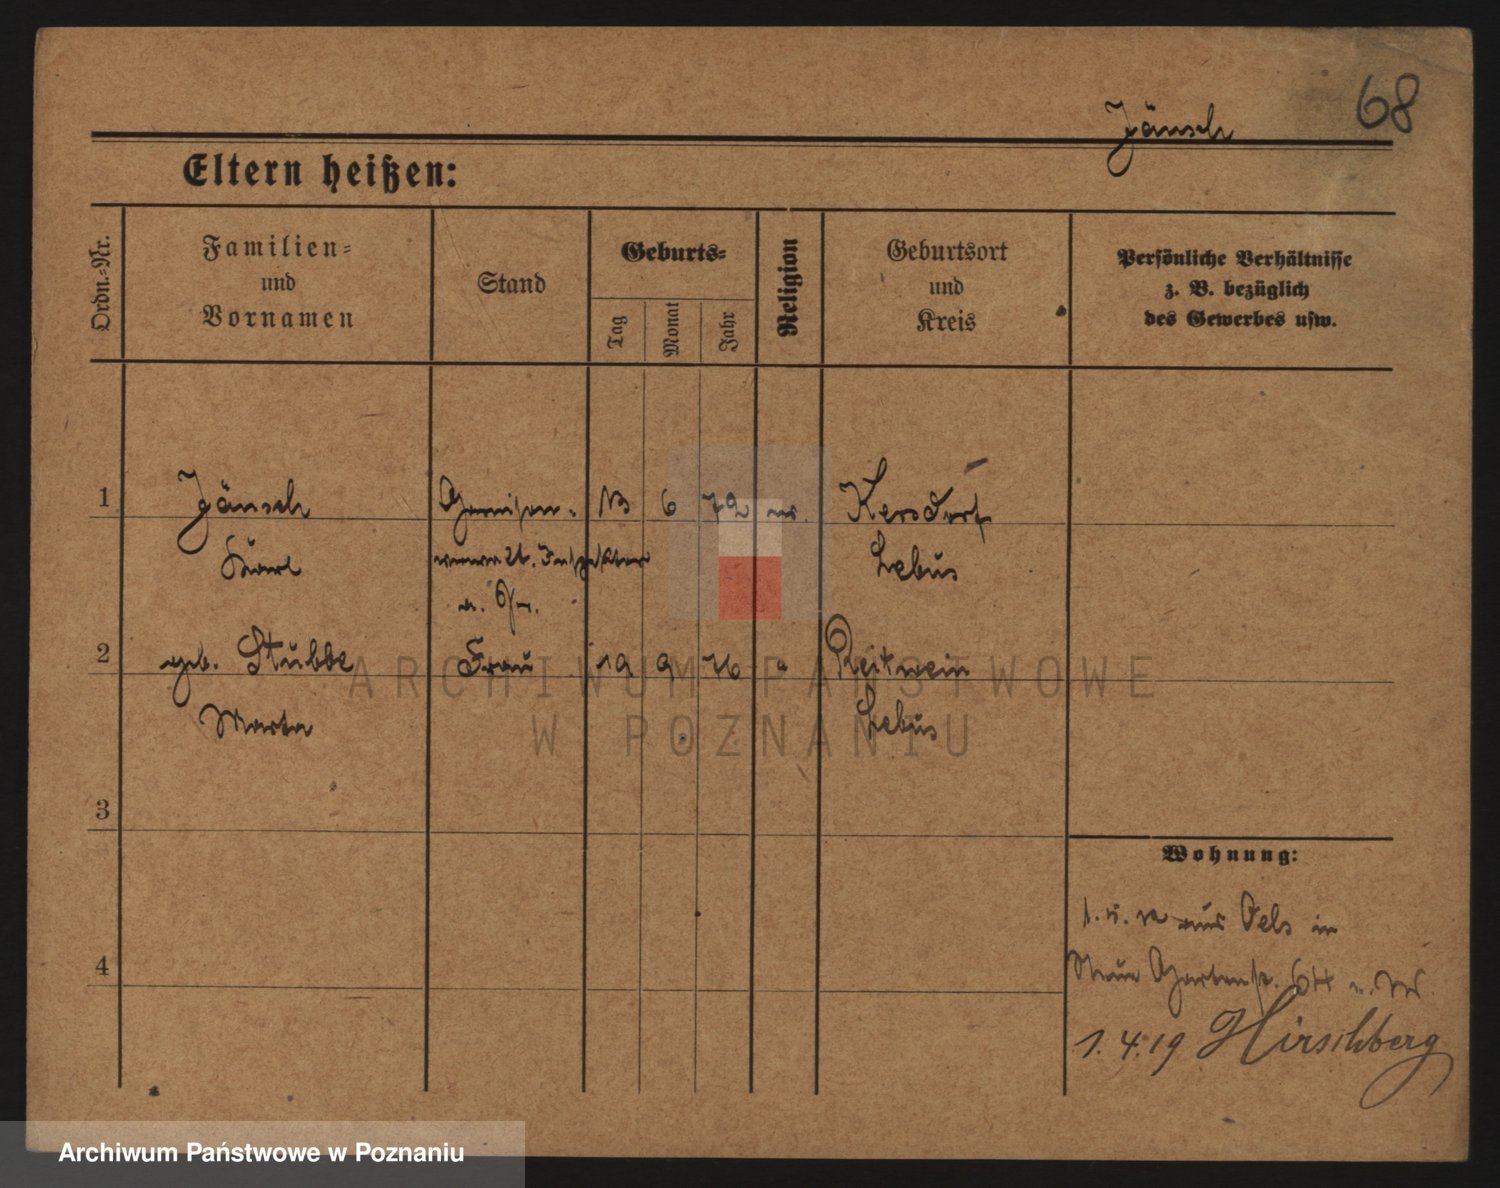 68
Jänsch
Eltern heißen:
Ordn.=Nr.
Familien=
und
Vornamen
Stand
Geburts=
Tag
Monat
Jahr
Religion
Geburtsort
und
Kreis
Persönliche Verhältnisse
z. B. bezüglich
des Gewerbes usw.
1 Jänsch Garnison= 13 6 72 ev. Kersdorf
Karl Inspektor Lebus
2 geb. Stubbe Frau 19 9 76 " Reitwein
Marta Lebus
3
Wohnung:
aus Oels in
4
Neue Gartenstr. 64
1.4.19 Hirschberg
ARCHIWUM PAŃSTWOWE
W POZNANIU
Archiwum Państwowe w Poznaniu